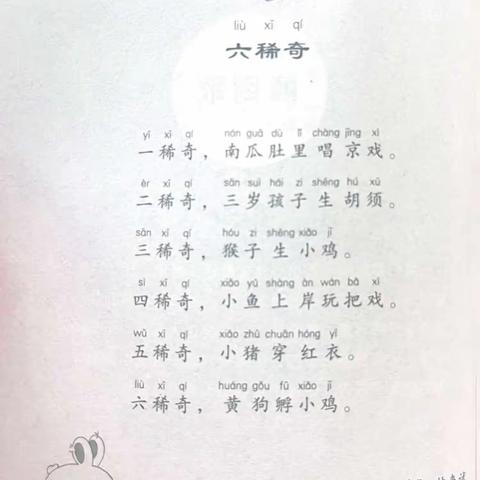 liù xī qí
六稀奇
yī xī qí nán guā dù lǐ chàng jīng xì
一稀奇，南瓜肚里唱京戏。
èr xī qí sān suì hái zi shēng hú xū
二稀奇，三岁孩子生胡须。
sān xī qí hóu zi shēng xiǎo jī
三稀奇，猴子生小鸡。
sì xī qí xiǎo yú shàng àn wán bǎ xì
四稀奇，小鱼上岸玩把戏。
wǔ xī qí xiǎo zhū chuān hóng yī
五稀奇，小猪穿红衣。
liù xī qí huáng gǒu fū xiǎo jī
六稀奇，黄狗孵小鸡。